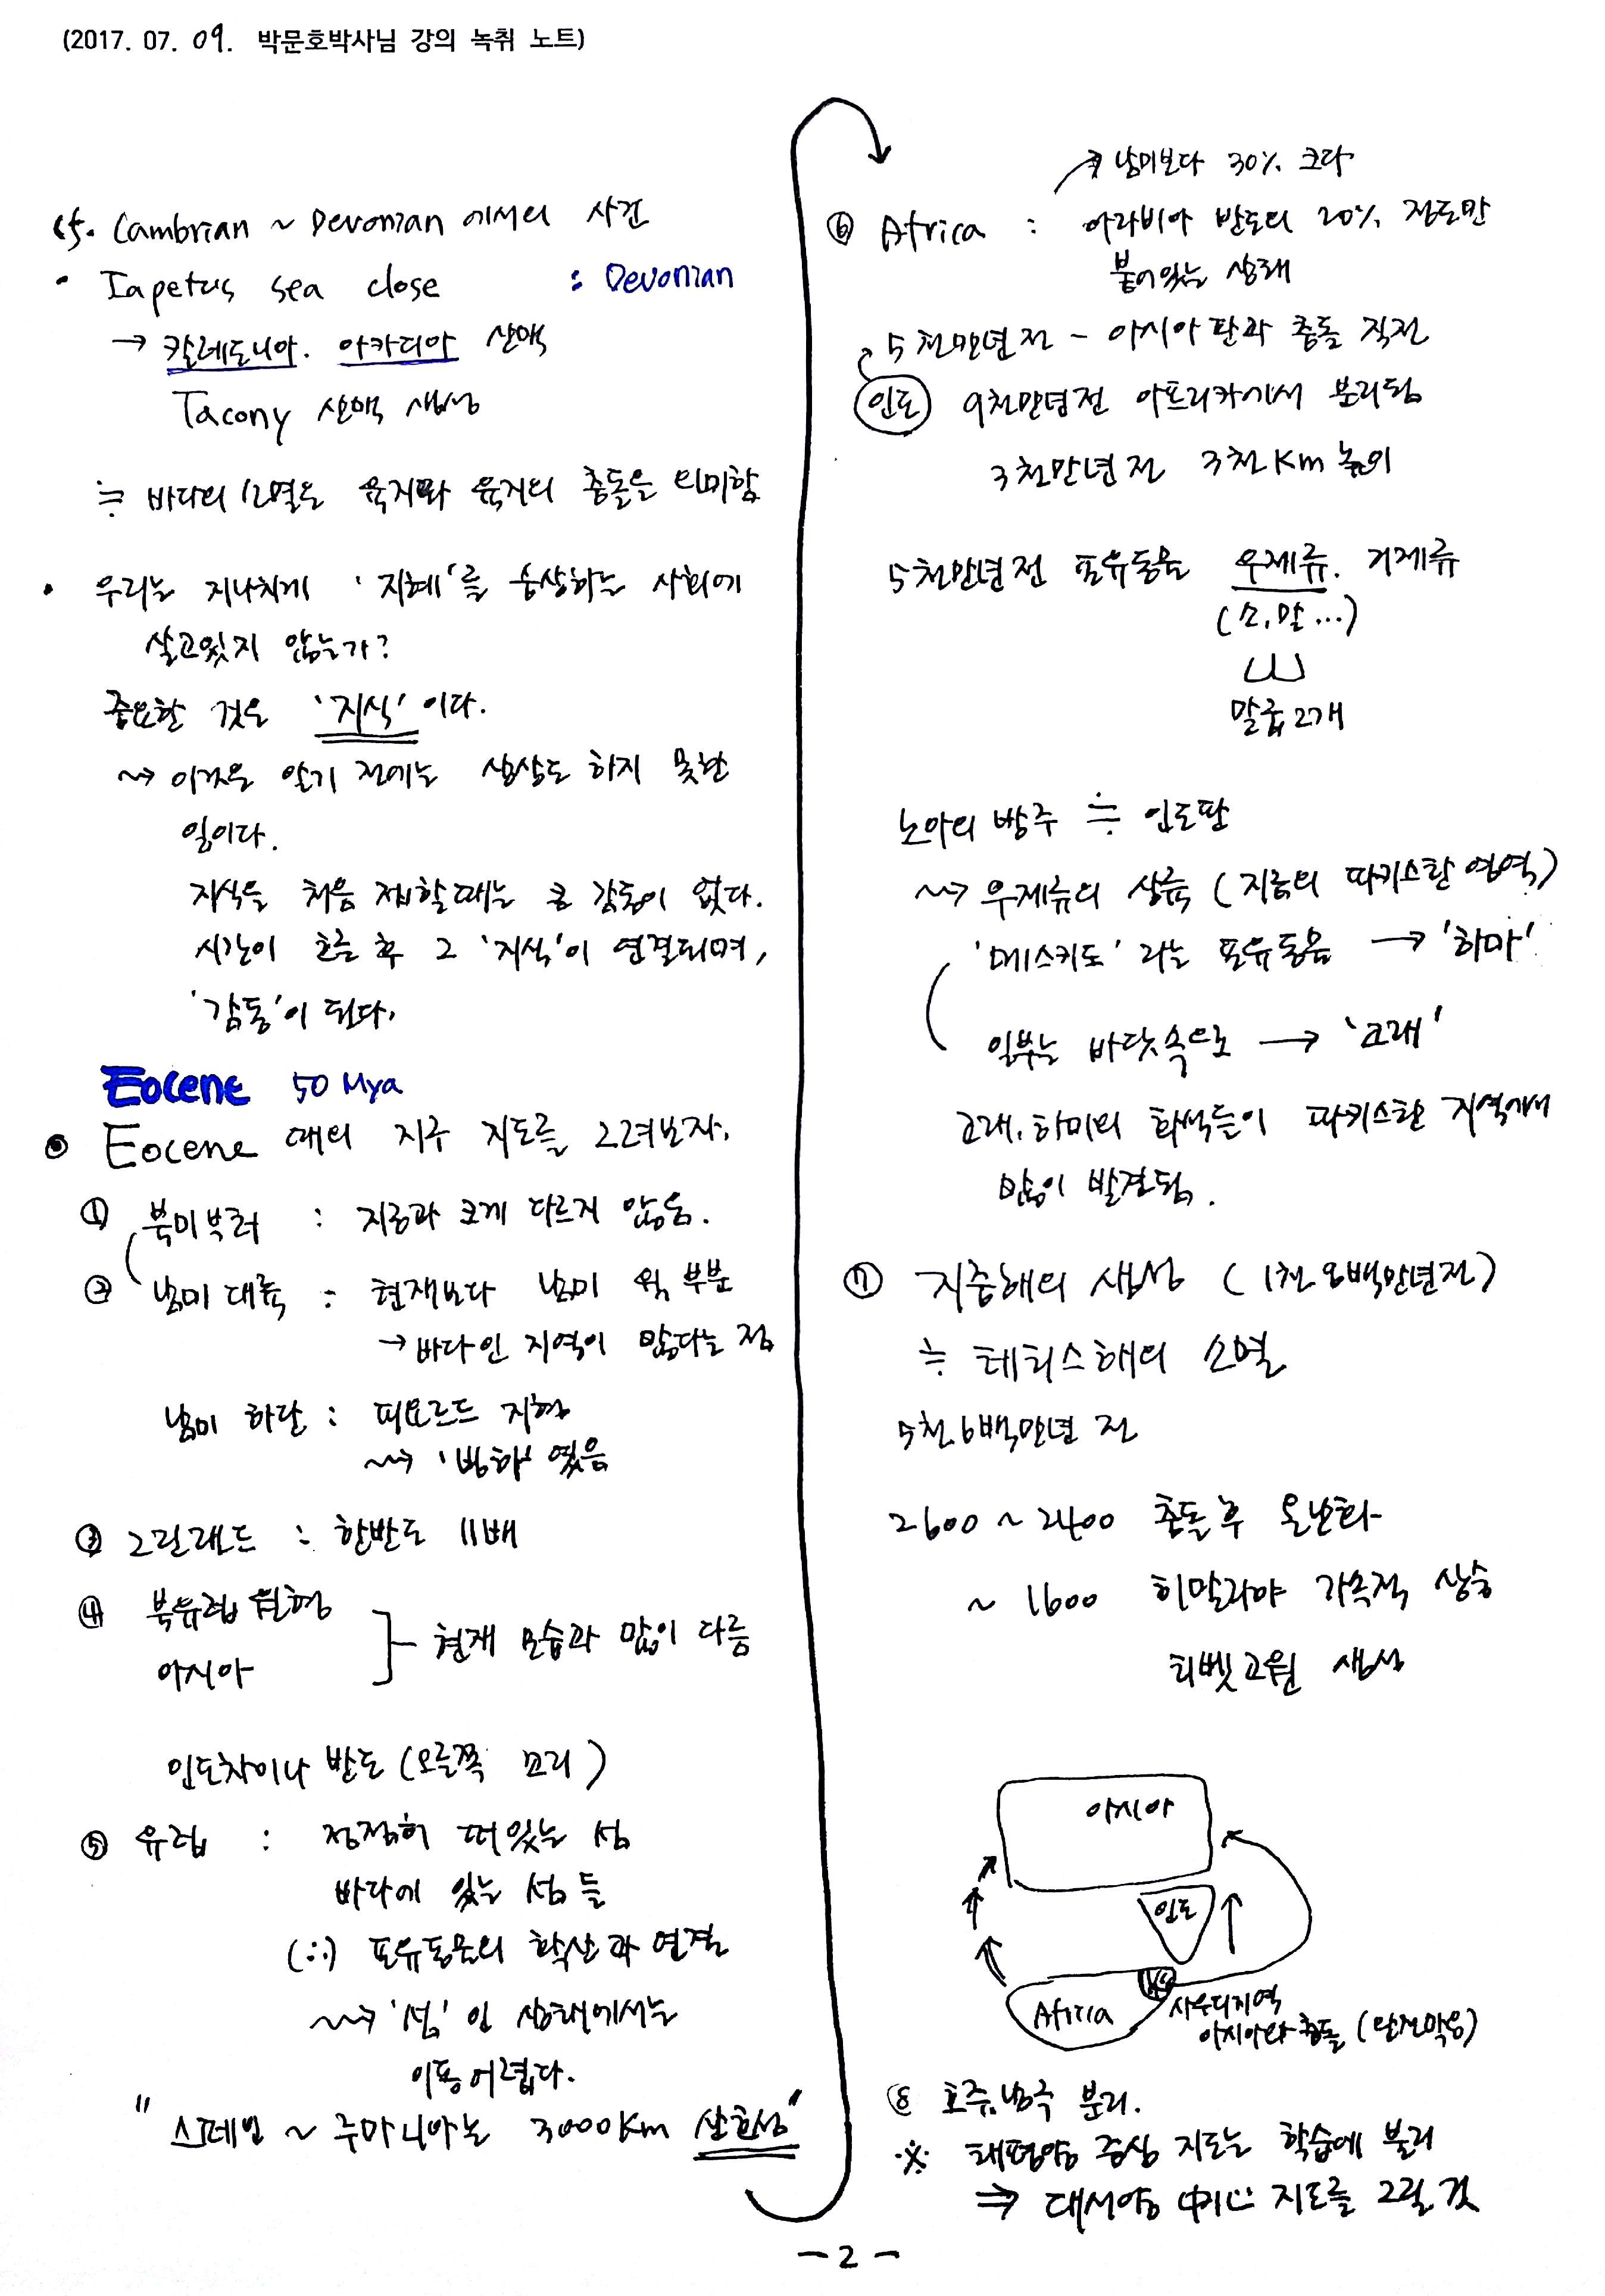 (2017. 07. 09. 박문호박사님 강의 녹취 노트)
cf. Cambrian ~ Devonian 에서의 사건
· Iapetus sea close : Devonian
→ 칼레도니아. 아카디아 산맥
Tacony 산맥 생성
≒ 바다의 소멸은 육지와 육지의 충돌을 의미함
· 우리는 지나치게 '지혜'를 숭상하는 사회에
살고있지 않는가?
중요한 것은 '지식'이다.
~> 이것은 알기 전에는 상상도 하지 못한
일이다.
지식을 처음 접할때는 큰 감동이 없다.
시간이 흐른 후 그 '지식'이 연결되며,
'감동'이 된다.
Eocene 50 Mya
◎ Eocene 대의 지구 지도를 그려보자.
① 북미부터 : 지금과 크게 다르지 않음.
② 남미 대륙 : 현재보다 남미 윗 부분
→ 바다인 지역이 많다는 점
남미 하단 : 피요르드 지형
~> '빙하' 였음
③ 그린랜드 : 한반도 11배
④ 북유럽 원형
아시아
현재 모습과 많이 다름
인도차이나 반도 (오른쪽 꼬리)
⑤ 유럽 : 점점히 떠있는 섬
바다에 있는 섬들
(∵) 포유동물의 확산과 연결
~> '섬' 인 상태에서는
이동 어렵다.
"스페인 ~ 루마니아는 3000Km 산호섬"
↗ 남미보다 30% 크다
⑥ Africa : 아라비아 반도의 20% 정도만
붙어있는 상태
5천만년 전 - 아시아 판과 충돌 직전
인도 9천만년전 아프리카에서 분리됨
3천만년 전 3천Km 높이
5천만년 전 포유동물 우제류. 기제류
(소, 말 …)
말굽 2개
노아의 방주 ≒ 인도판
~> 우제류의 상륙 (지금의 파키스탄 영역)
'메스키드' 라는 포유동물 → '하마'
일부는 바닷속으로 → '고래'
고래, 하마의 화석들이 파키스탄 지역에서
많이 발견됨.
⑦ 지중해의 생성 (1천 5백만년전)
≒ 테티스해의 소멸
5천.6백만년 전
2600 ~ 2400 충돌 후 온난화
~ 1600 히말라야 가속적 상승
티벳고원 생성
아시아
인도
Africa
사우디지역
아시아와 충돌 (완전막음)
⑧ 호주.남극 분리.
※ 태평양 중심 지도는 학습에 불리
⇒ 대서양 中心 지도를 그릴 것
- 2 -